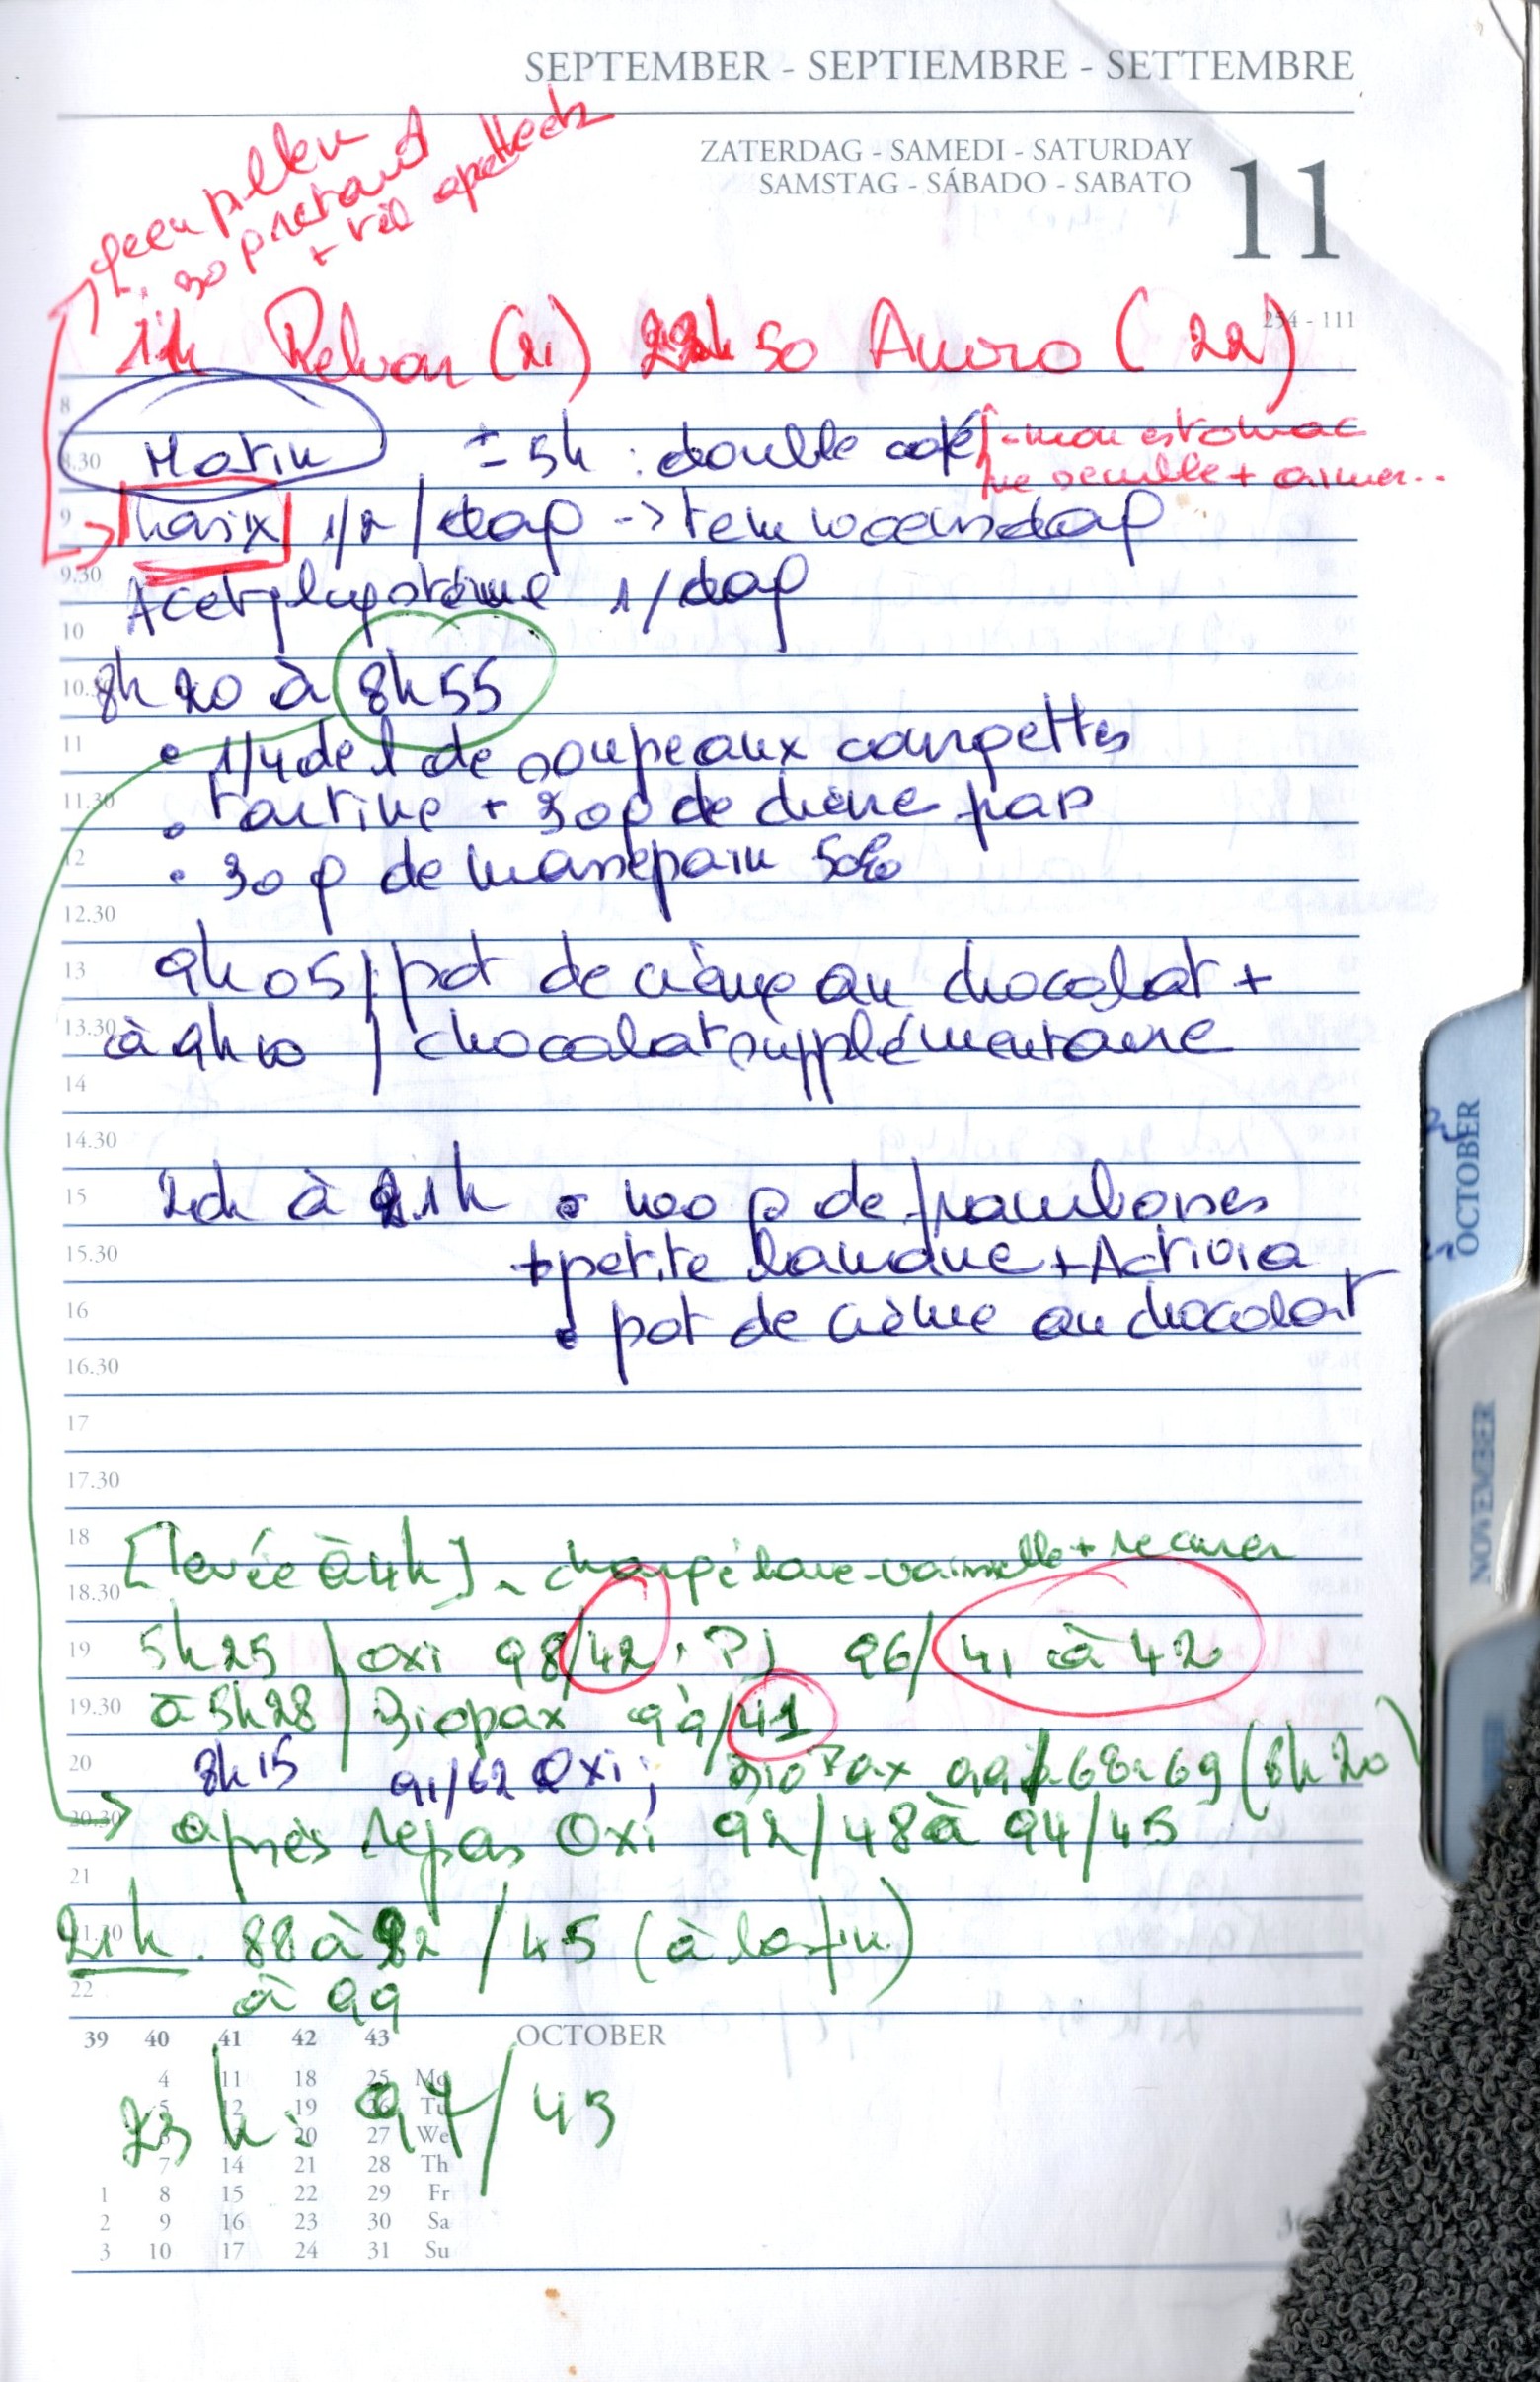 SEPTEMBER - SEPTIEMBRE - SETTEMBRE
ZATERDAG - SAMEDI - SATURDAY
SAMSTAG - SÁBADO - SABATO
11
254 - 111
geen pillen
+ vél apotheek
11h Relvar (21) 22h50 Anoro (22)
8
Matin ± 5h : double café
- mon estomac
ne semble + aimer...
8.30
9
Lasix 1/2 /dag -> tem woensdag
9.30
Acetylcysteïne 1/dag
10
8h20 à 8h55
10.30
11
• 1/4 de l de soupe aux courgettes
11.30
• tartine + 30g de chèvre
12
• 30 g de massepain
12.30
9h05 pot de crème au chocolat +
13
à 9h10 chocolat supplémentaire
13.30
14
14.30
20h à 21h • 100 g de framboises
15
+ petite banane + Activia
15.30
• pot de crème au chocolat
16
16.30
17
17.30
18
[levée à 4h] ~ chargé lave-vaisselle + récurer
18.30
5h25 oxi 98/42 96/41 à 42
19
à 5h28 Biopax 99/41
19.30
8h15 91/62 Oxi; BioPax 99/68-69 (8h20)
20
après repas Oxi 92/48 à 94/45
20.30
21
21h. 88 à 92 / 45 (à la fin)
21.30
à 99
22
39 40 41 42 43 OCTOBER
4 11 18 25 Mo
5 12 19 26 Tu
6 13 20 27 We
7 14 21 28 Th
1 8 15 22 29 Fr
2 9 16 23 30 Sa
3 10 17 24 31 Su
23h: 97/43
OCTOBER
NOVEMBER